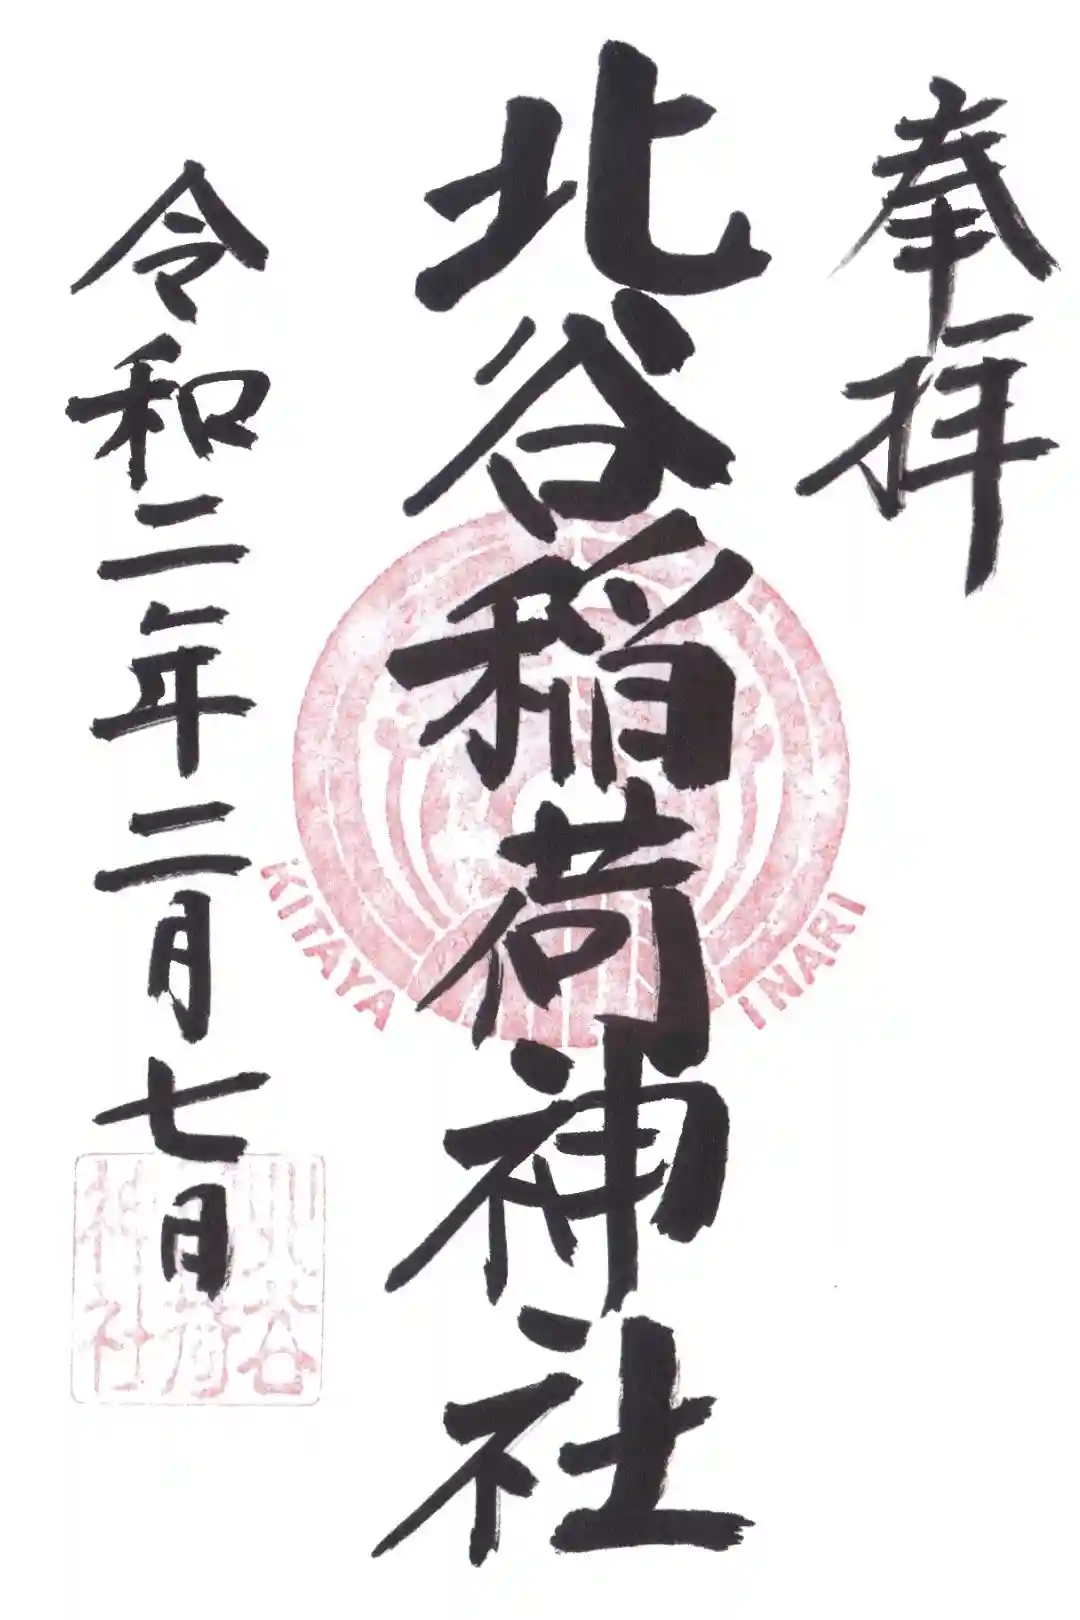 奉拝
北谷稲荷神社
KITAYA INARI
令和二年二月七日
北谷
稲荷
神社